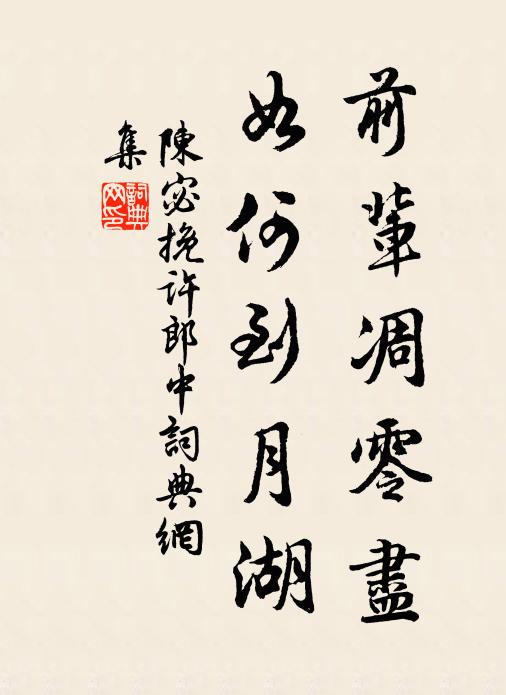 前輩凋零盡
如何到月湖
陳宓挽許郎中詞典網
集
詞典網印